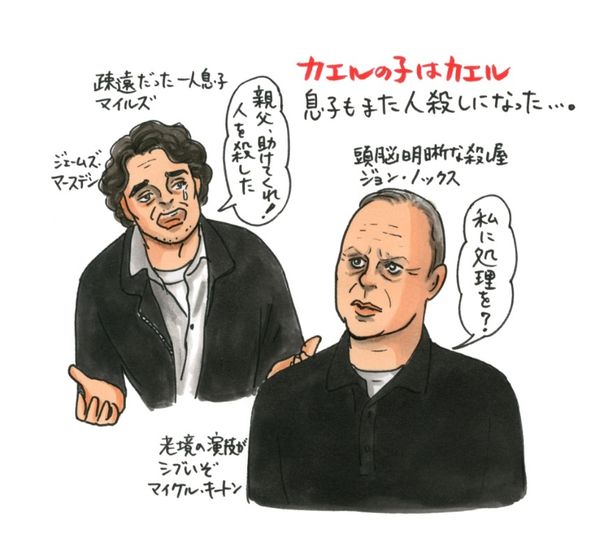 カエルの子はカエル
息子もまた人殺しになった…。
疎遠だった一人息子
マイルズ
ジェームズ・
マースデン
親父、助けてくれ!
人を殺した
頭脳明晰な殺し屋
ジョン・ノックス
私に
処理を?
老境の演技が
シブいぞ
マイケル・キートン